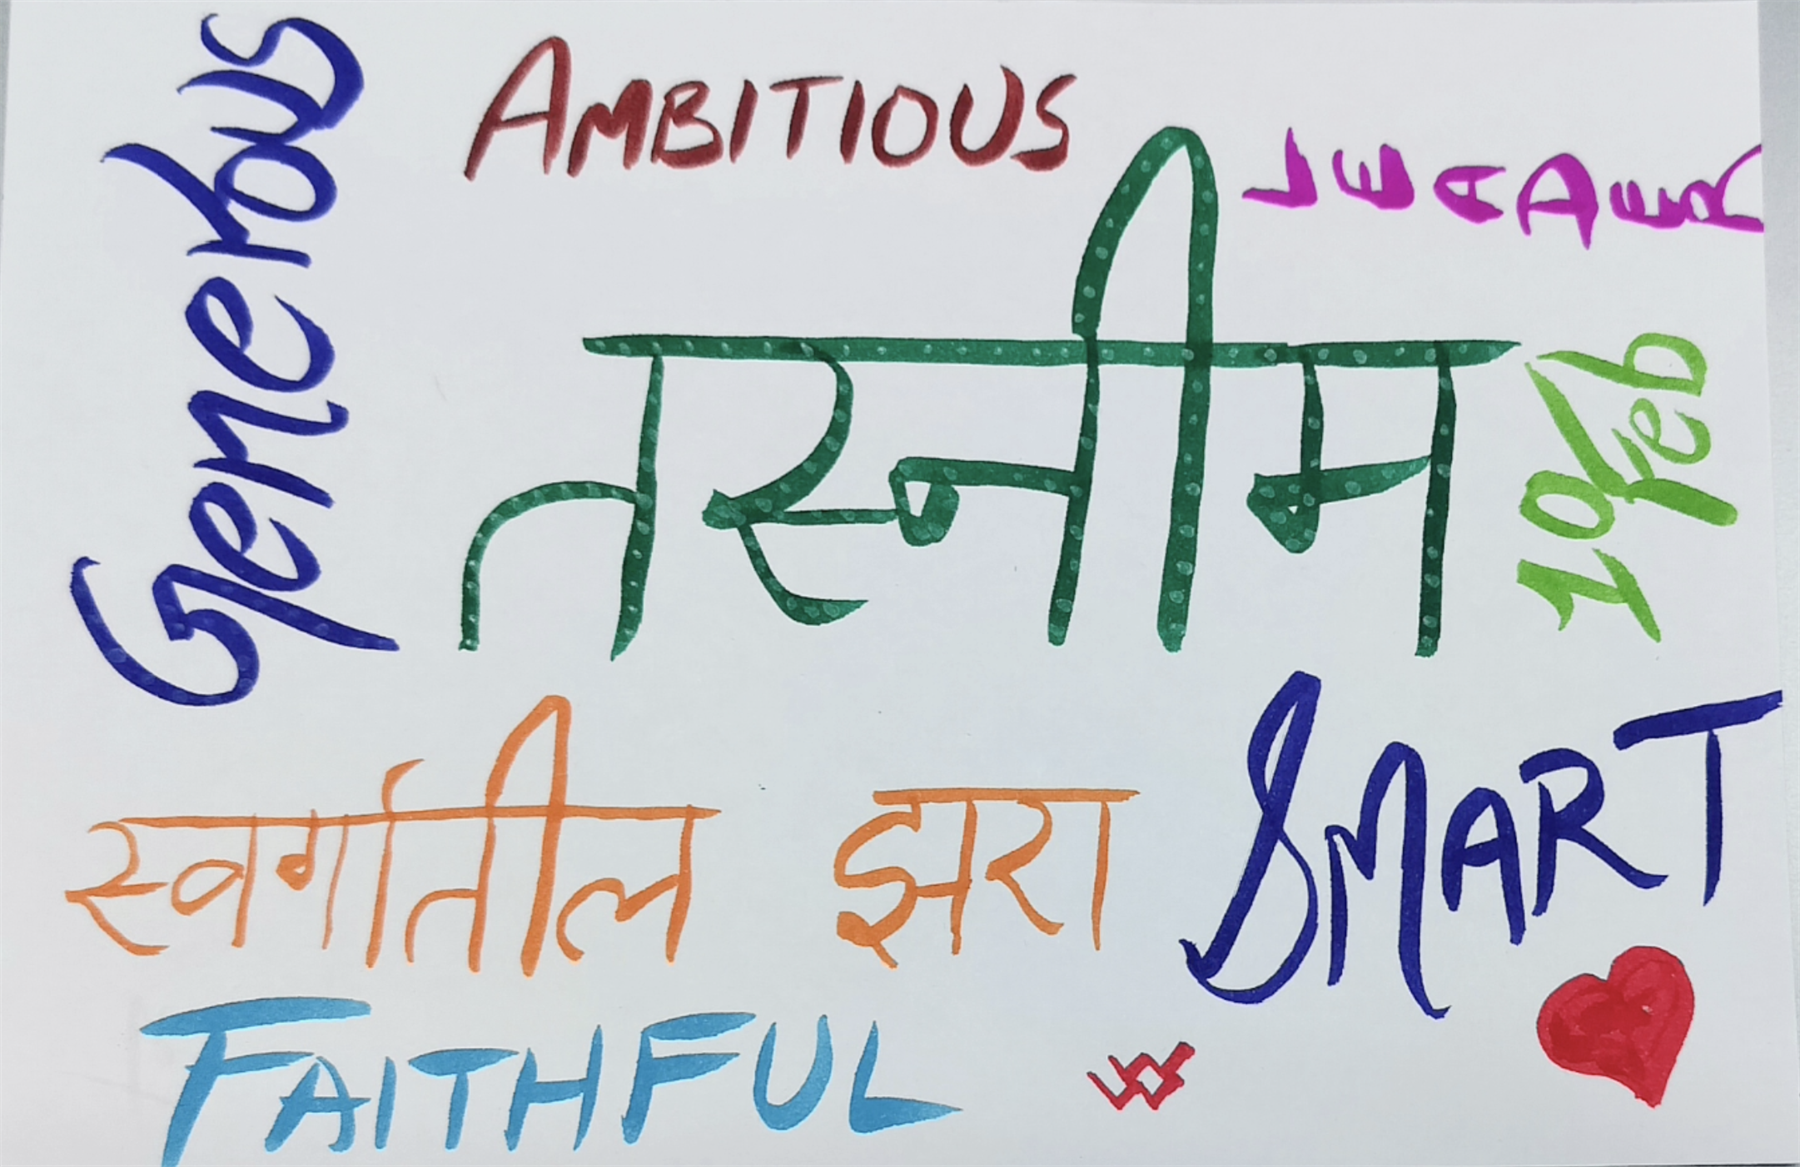 Generous
AMBITIOUS
LEADER
तस्नीम
19 Feb
स्वर्गातील झरा
SMART
FAITHFUL